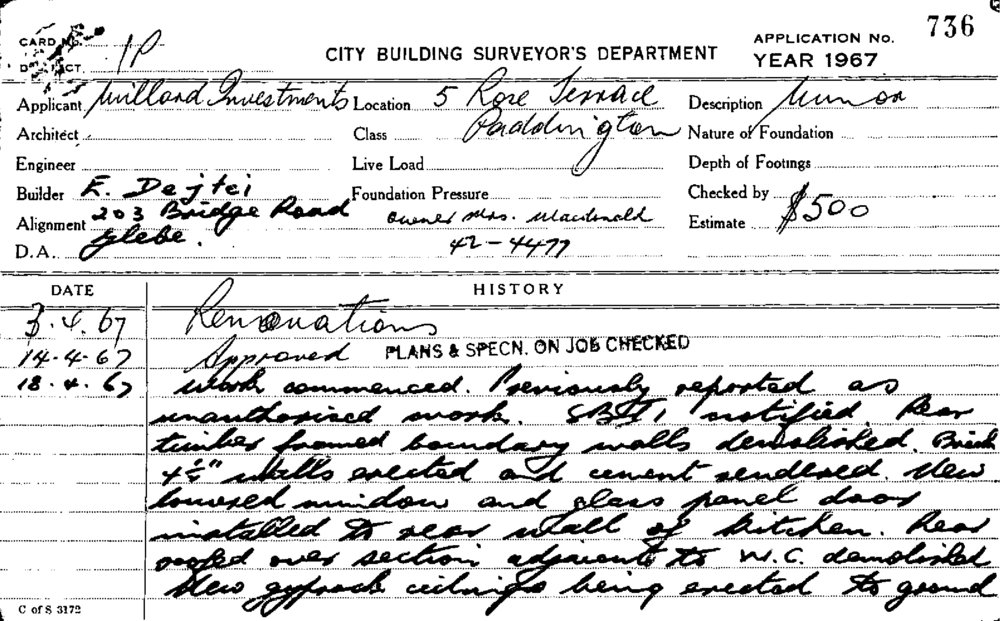 CARD No. 1P
CITY BUILDING SURVEYOR'S DEPARTMENT
APPLICATION No. 736
YEAR 1967
DISTRICT
Applicant Willard Investments Location 5 Rose Terrace Description Minor
Architect Class Paddington Nature of Foundation
Engineer Live Load Depth of Footings
Builder E. Dejtei Foundation Pressure Checked by
Alignment 203 Bridge Road Owner Mrs. Macdonald Estimate $500
D.A. Glebe. 42-4477
DATE HISTORY
3.4.67 Renovations
14-4-67 Approved PLANS & SPECN. ON JOB CHECKED
18.4.67 Work commenced. Previously reported as
unauthorised work. notified Rear
timber framed boundary walls demolished. Brick
4½" walls erected and cement rendered. New
louvred window and glass panel door
installed to rear wall of kitchen. Rear
roofed over section adjacent to W.C. demolished
New gyprock ceilings being erected to ground
C of S 3172